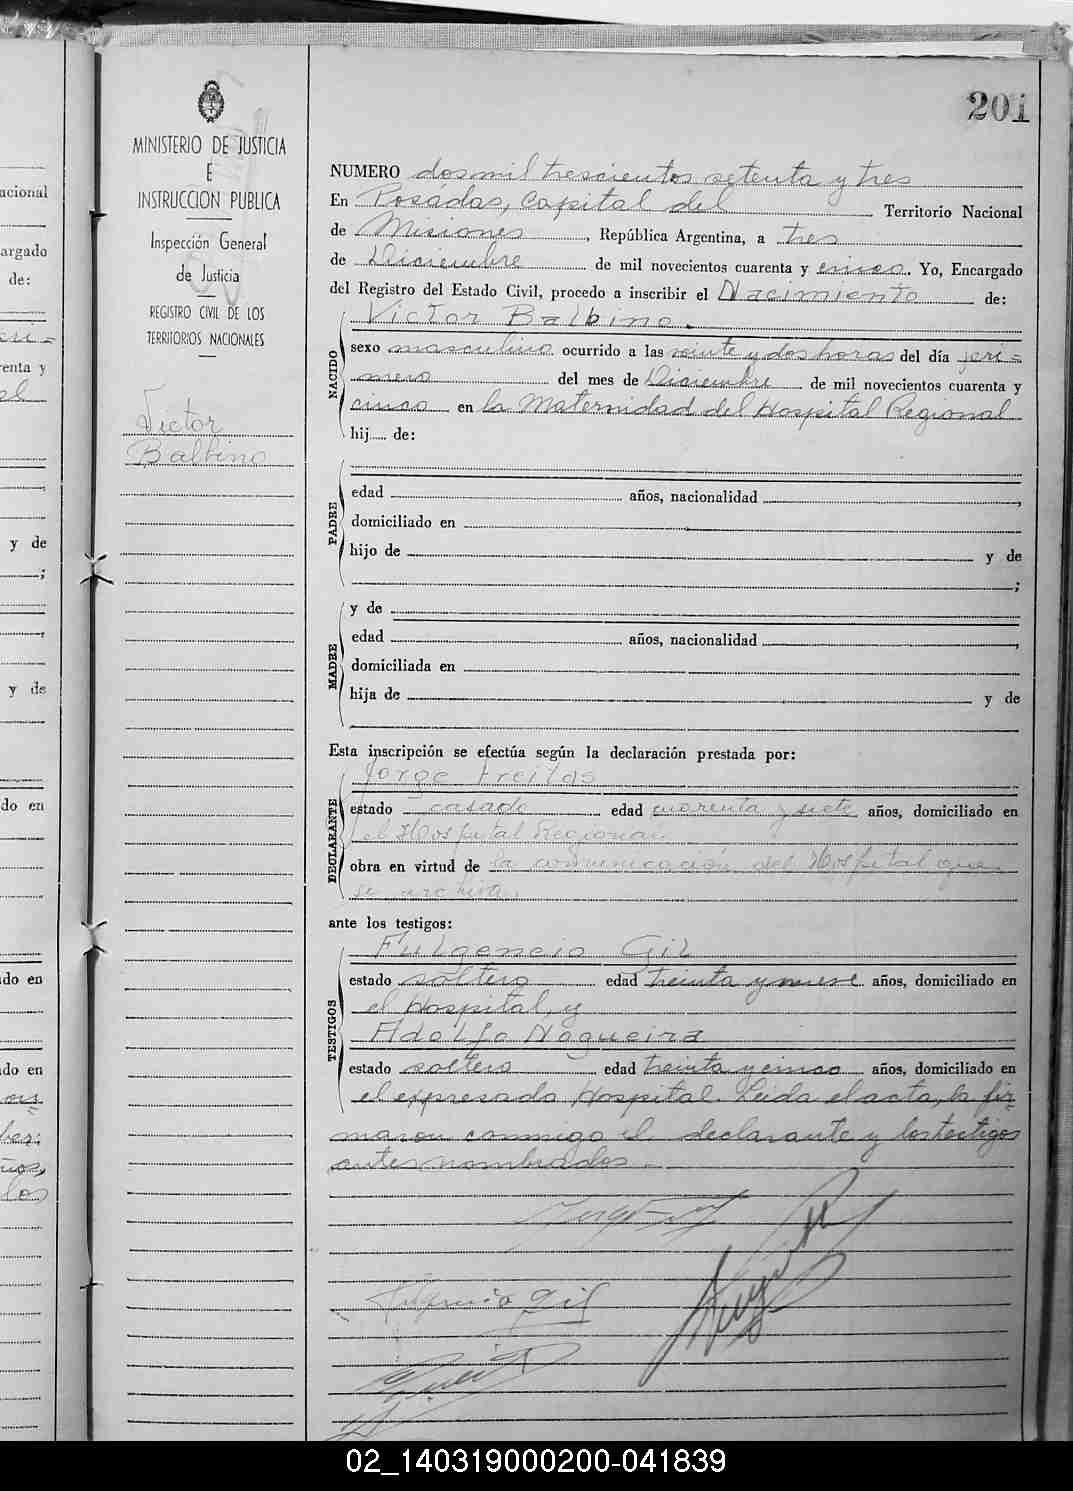 201
MINISTERIO DE JUSTICIA
E
INSTRUCCION PUBLICA
Inspección General
de Justicia
REGISTRO CIVIL DE LOS
TERRITORIOS NACIONALES
Victor
Balbino
NUMERO dos mil trescientos setenta y tres
En Posádas, Capital del Territorio Nacional
de Misiones, República Argentina, a tres
de Diciembre de mil novecientos cuarenta y cinco. Yo, Encargado
del Registro del Estado Civil, procedo a inscribir el Nacimiento de:
NACIDO
Victor Balbino.
sexo masculino ocurrido a las veinte y dos horas del día pri=
mero del mes de Diciembre de mil novecientos cuarenta y
cinco en la Maternidad del Hospital Regional
hij..... de:
PADRE
edad años, nacionalidad ,
domiciliado en
hijo de y de
;
MADRE
y de
edad años, nacionalidad ,
domiciliada en
hija de y de
Esta inscripción se efectúa según la declaración prestada por:
DECLARANTE
Jorge Freitas
estado casado edad cuarenta y siete años, domiciliado en
el Hospital Regional
obra en virtud de la comunicación del Hospital que
se archiva.
ante los testigos:
TESTIGOS
Fulgencio Gil
estado soltero edad treinta y nueve años, domiciliado en
el Hospital, y
Adolfo Nogueira
estado soltero edad treinta y cinco años, domiciliado en
el expresado Hospital. Leida el acta, la fir-
maron conmigo el declarante y los testigos
antes nombrados.
Fulgencio Gil
acional
argado
de:
enta y
y de
;
y de
do en
do en
do en
los
02_140319000200-041839